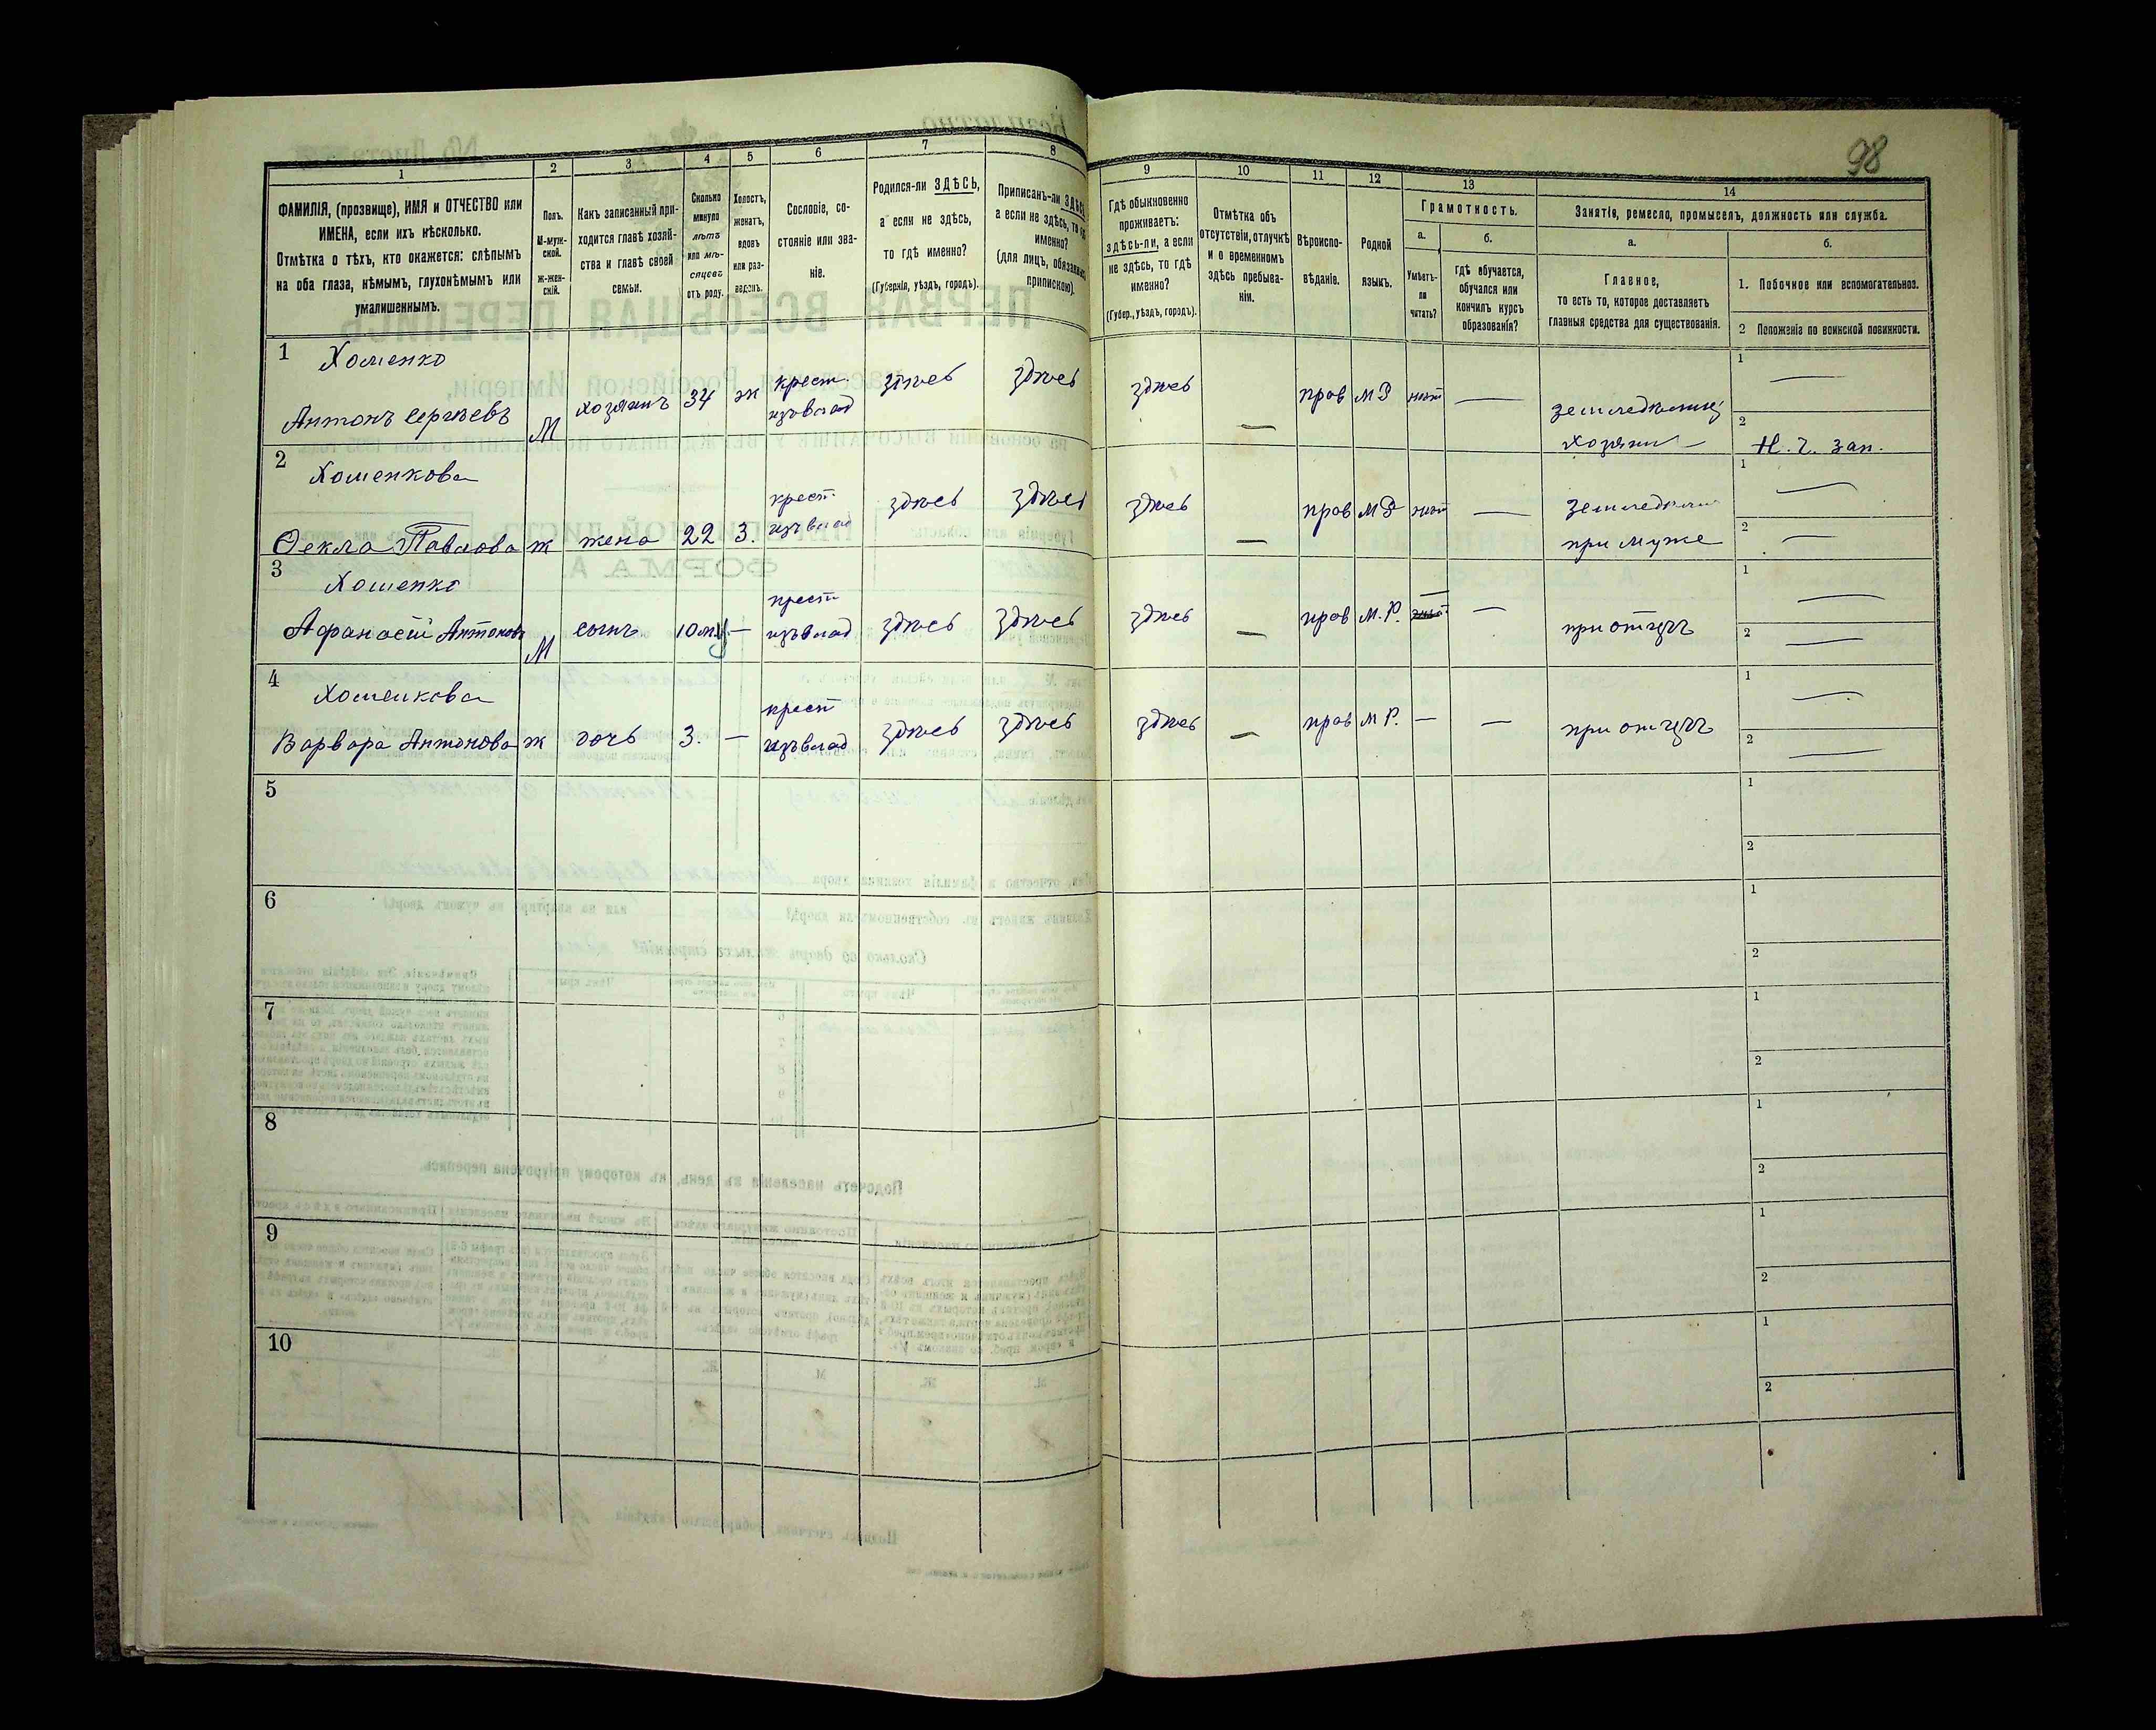 98
1
2
3
4
5
6
7
8
9
10
11
12
13
14
ФАМИЛІЯ, (прозвище), ИМЯ и ОТЧЕСТВО или
ИМЕНА, если ихъ нѣсколько.
Отмѣтка о тѣхъ, кто окажется: слѣпымъ
на оба глаза, нѣмымъ, глухонѣмымъ или
умалишеннымъ.
Полъ.
М-муж-
ской.
Ж-жен-
скій.
Какъ записанный при-
ходится главѣ хозяй-
ства и главѣ своей
семьи.
Сколько
минуло
лѣтъ
или мѣ-
сяцевъ
отъ роду.
Холостъ,
женатъ,
вдовъ
или раз-
веденъ.
Сословіе, со-
стояніе или зва-
ніе.
Родился-ли ЗДѢСЬ,
а если не здѣсь,
то гдѣ именно?
(Губернія, уѣздъ, городъ).
Приписанъ-ли ЗДѢСЬ,
а если не здѣсь, то гдѣ
именно?
(для лицъ, обязанныхъ
припискою).
Гдѣ обыкновенно
проживаетъ:
здѣсь-ли, а если
не здѣсь, то гдѣ
именно?
(Губер., уѣздъ, городъ).
Отмѣтка объ
отсутствіи, отлучкѣ
и о временномъ
здѣсь пребыва-
ніи.
Вѣроиспо-
вѣданіе.
Родной
языкъ.
Грамотность.
а.
Умѣетъ-
ли
читать?
б.
гдѣ обучается,
обучался или
кончилъ курсъ
образованія?
Занятіе, ремесло, промыселъ, должность или служба.
а.
Главное,
то есть то, которое доставляетъ
главныя средства для существованія.
б.
1. Побочное или вспомогательное.
2 Положеніе по воинской повинности.
1 Хоменко
Антонъ Сергѣевъ М хозяинъ 34 ж крест. изъ влад здѣсь здѣсь здѣсь — прав М Р нѣт —
1 —
хозяинъ
2 Н. ч. зап.
2 Хоменкова
Ѳекла Павлова ж жена 22 з. крест изъ влад здѣсь здѣсь здѣсь — прав М Р нѣт —
1 —
при муже
2 —
3 Хоменко
Афанасій Антоновъ М сынъ 10 м. — крест изъ влад здѣсь здѣсь здѣсь — прав М. Р. — —
при отцѣ
1 —
2 —
4 Хоменкова
Варвара Антонова ж дочь 3. — крест изъ влад здѣсь здѣсь здѣсь — прав М Р. — —
при отцѣ
1 —
2 —
5
1
2
6
1
2
7
1
2
8
1
2
9
1
2
10
1
2